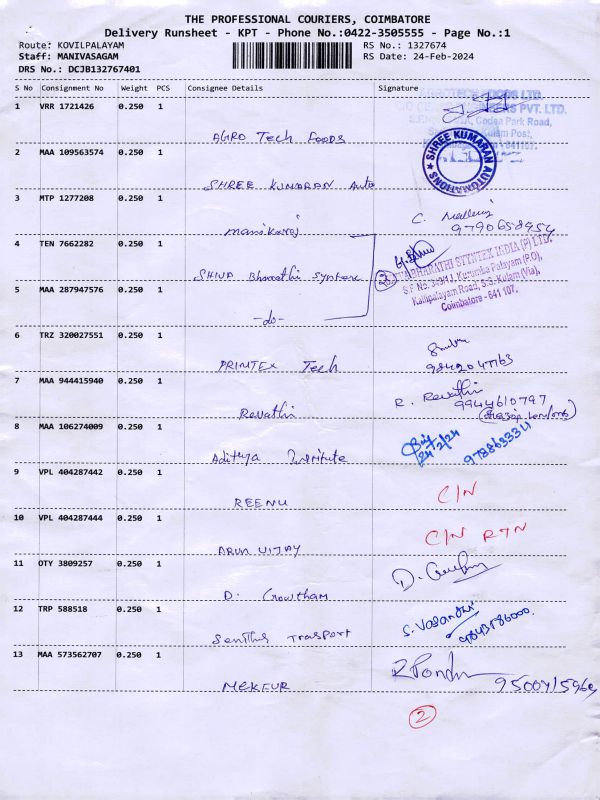 THE PROFESSIONAL COURIERS, COIMBATORE
Delivery Runsheet - KPT - Phone No.:0422-3505555 - Page No.:1
Route: KOVILPALAYAM
Staff: MANIVASAGAM
DRS No.: DCJB132767401
RS No.: 1327674
RS Date: 24-Feb-2024
S No Consignment No Weight PCS Consignee Details Signature
1 VRR 1721426 0.250 1
AGRO Tech FOODS
VT. LTD.
Park Road,
Post,
2 MAA 109563574 0.250 1
SHREE KUMARAN Auto
SHREE KUMARAN AUTOMATIONS
3 MTP 1277208 0.250 1
manikaraj
C.
9790658954
4 TEN 7662282 0.250 1
SHIVA Bharathi
2
BHARATHI SYNTEX INDIA (P) LTD.
S.F No. 349/1J, Kurumba Palayam (P.O),
Kallipalayam Road, S.S. Kulam (Via),
Coimbatore - 641 107.
5 MAA 287947576 0.250 1
-do-
6 TRZ 320027551 0.250 1
PRINTEX Tech
9842047763
7 MAA 944415940 0.250 1
Revathi
R. Revathi
9944610797
8 MAA 106274009 0.250 1
Aditya Institute
24/2/24
9788633311
9 VPL 404287442 0.250 1
REENU
C/N
10 VPL 404287444 0.250 1
ARUN VIJAY
C/N RTN
11 OTY 3809257 0.250 1
D. Gowtham
D.
12 TRP 588518 0.250 1
Senthil TRASPORT
S. Vasanthi
9843586000.
13 MAA 573562707 0.250 1
MEKFUR
2